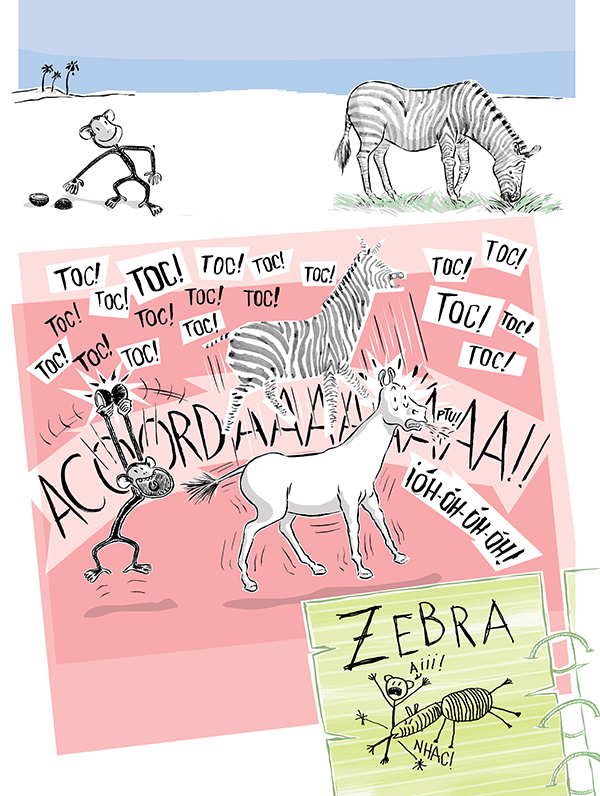 TOC! TOC! TOC! TOC! TOC!
TOC! TOC! TOC!
TOC! TOC! TOC!
TOC! TOC! TOC!
TOC! TOC!
TOC! TOC!
TOC!
PTU!
ACORDAAAAAAAAA!!
¡ÓH-ÓH-ÓH-ÓH!
ZEBRA
AIII!
NHAC!